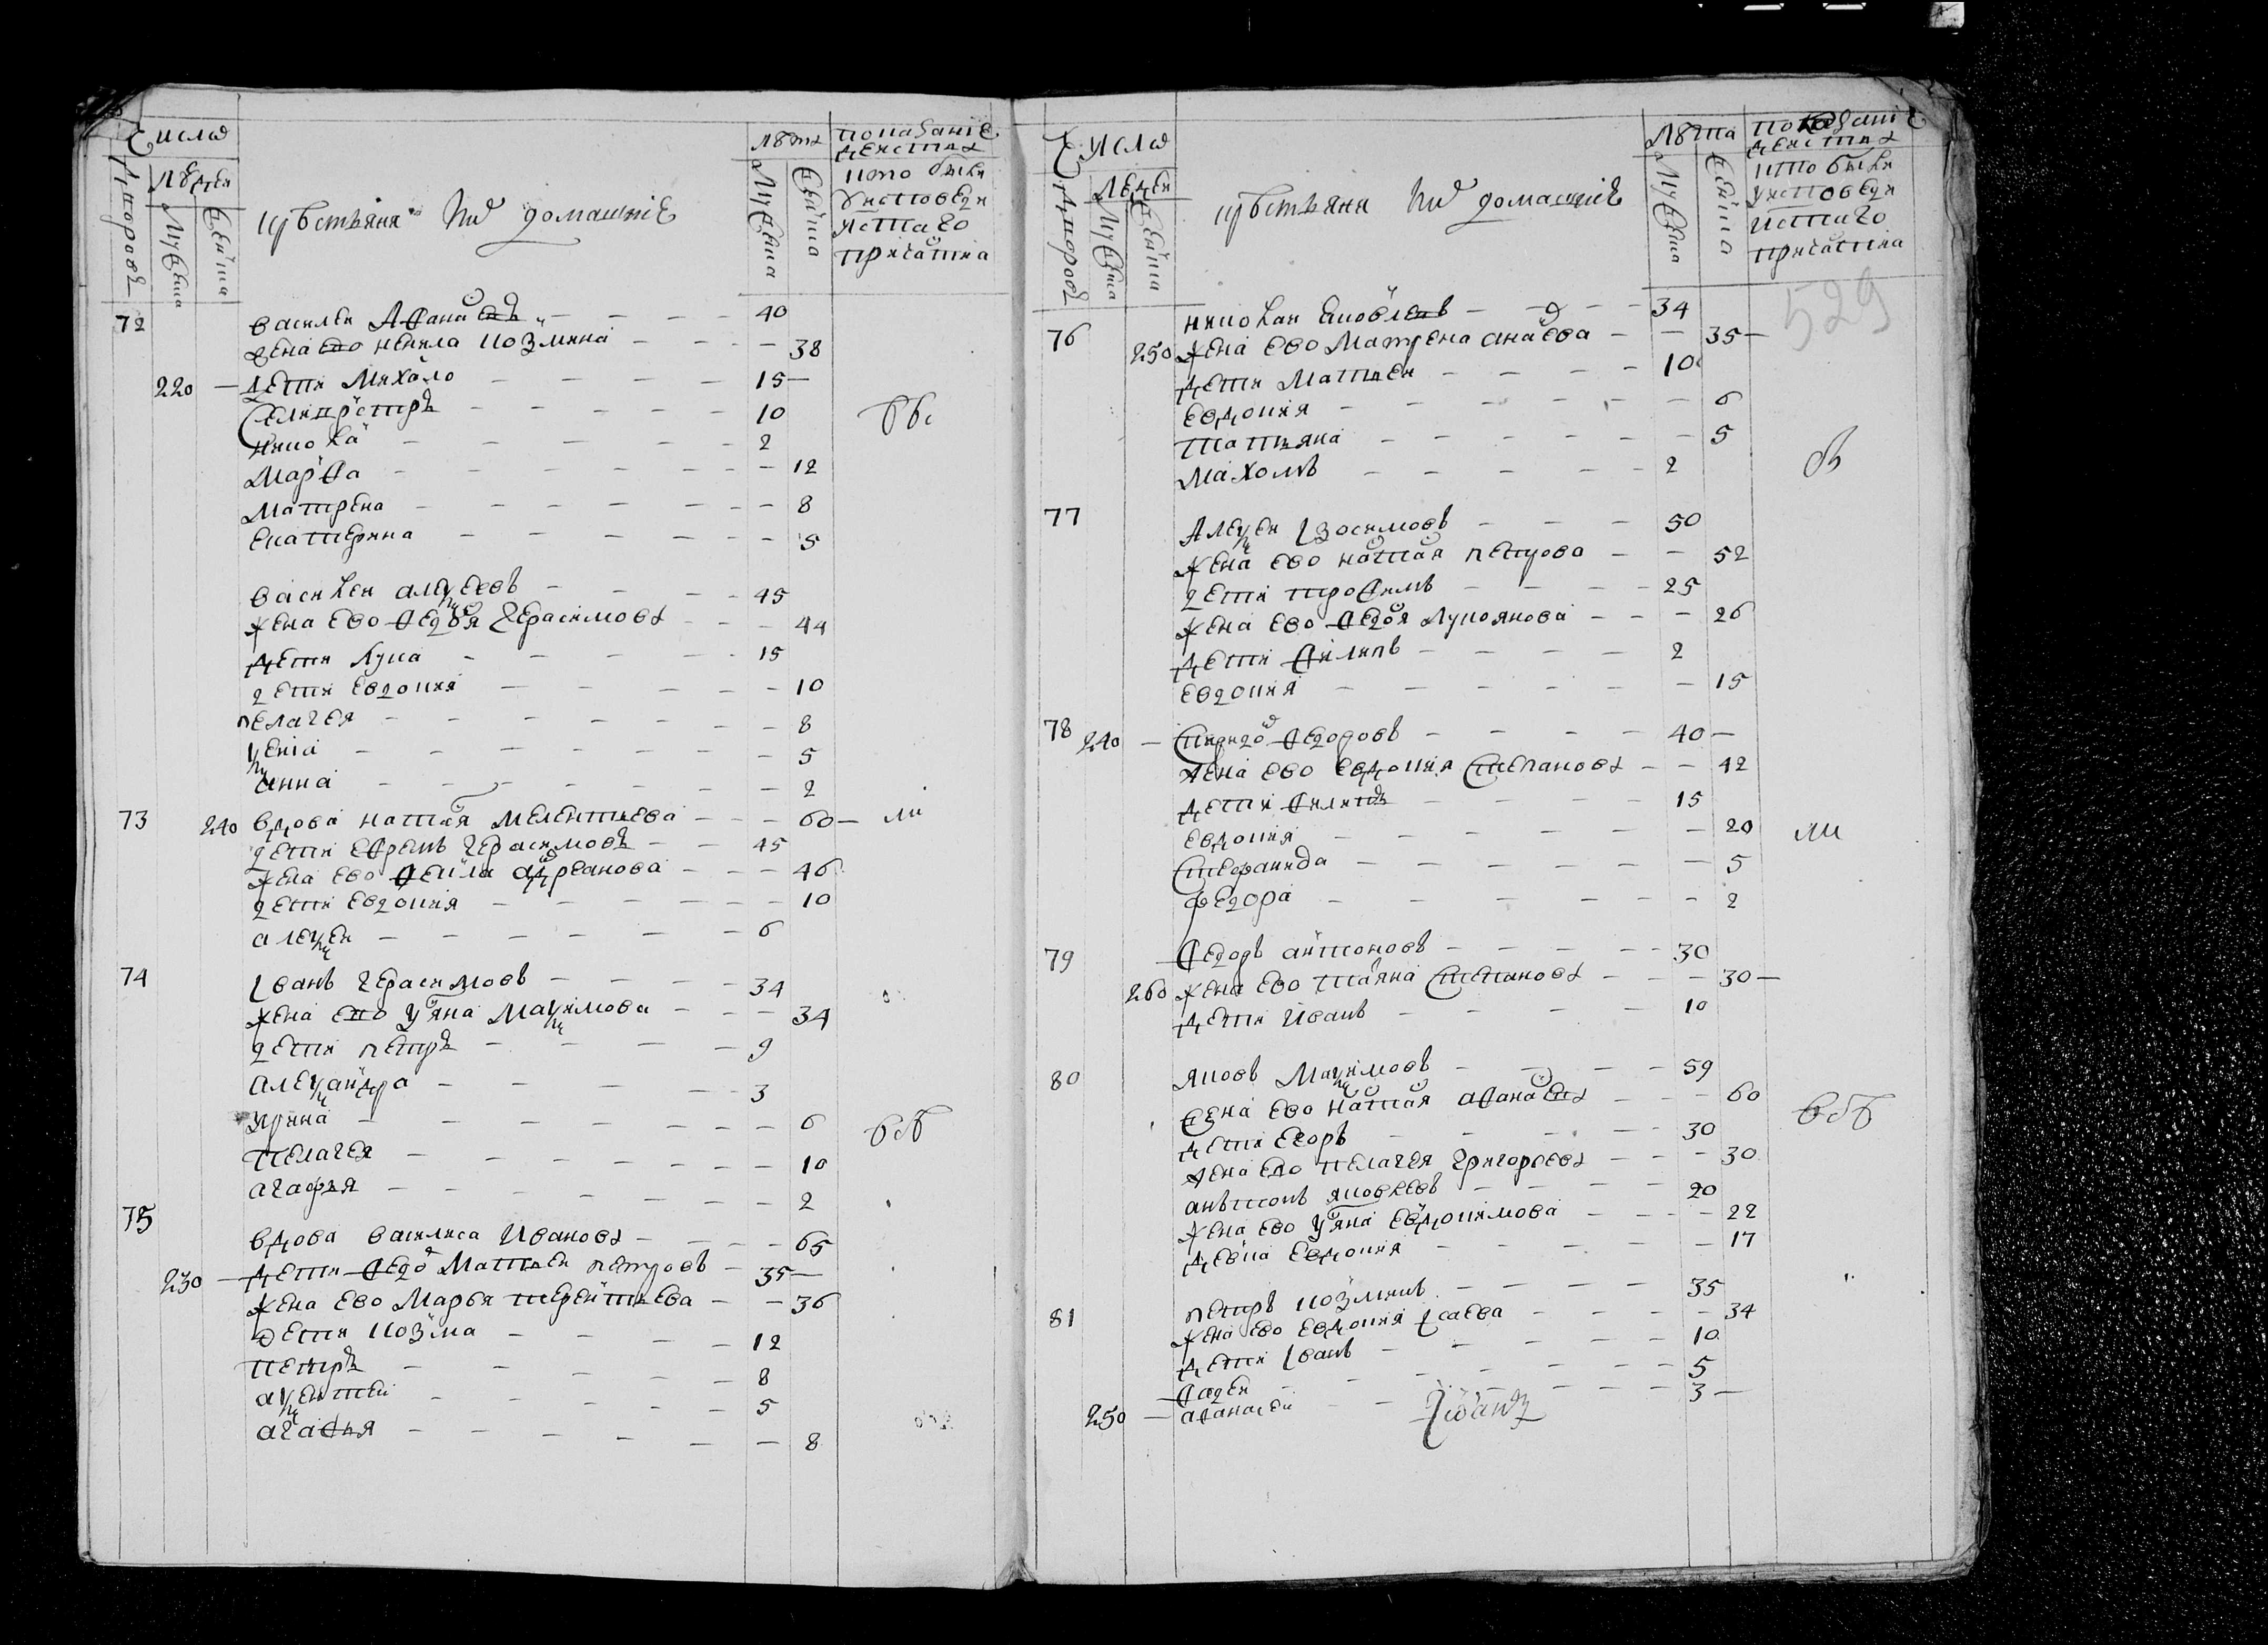 Число
Дворовъ
Людей
Мужеска
Женска
крѣстьяня ихъ домашние
Лѣта
Мужеска
Женска
показание
действа
кто былъ
у исповеди
и стаго
причастия
72 Василеи Афанасевъ 40
жена ево Ненила Козмина 38
220 дети Михаило 15
Селиврстръ 10
Николаи 2
Марфа 12
Матрена 8
Екатерина 5
быс
Василеи Алеѯеевъ 45
жена ево Федося Герасимова 44
дети Лука 15
дети Евдокия 10
пелагея 8
ѯения 5
анна 2
73 240 вдова наталя мелентьева 60
дети Ефремъ Герасимовъ 45
жена ево Фекла адреанова 46
дети Евдокия 10
алеѯеи 6
74 Іванъ Герасимовъ 34
жена ево Уляна Маѯимова 34
дети петръ 9
алеѯандра 3
Ирина 6
Пелагея 10
агафья 2
75 вдова василиса Иванова 65
230 дети Федо Матвеи петровъ 35
жена ево Марья терентьева 36
дети козма 12
петръ 8
аѯентеи 5
агафья 8
Число
Дворовъ
Людеи
Мужеска
Женска
крѣстьяня ихъ домашние
Лѣта
Мужеска
Женска
показание
действа
кто былъ
у исповеди
и стаго
причастия
529
76 николаи яковлевъ 34
250 жена ево Матрена 35
дети Матвеи 10
евдокия 6
татьяна 5
Махоилъ 2
77 Алеѯеи Ізосимовъ 50
жена ево наталя петрова 52
дети трофимъ 25
жена ево федося Лукоянова 26
дети Филипъ 2
евдокия 15
78 240 Спиридо Федоровъ 40
жена ево евдокия Степанова 42
дети Филипъ 15
евдокия 20
Степанида 5
федора 2
79 Федоръ антоновъ 30
260 жена ево татяна Степанова 30
дети Иванъ 10
80 яковъ Маѯимовъ 59
жена ево наталя афанасева 60
дети Егоръ 30
жена ево пелагея григорьева 30
антонъ яковлевъ 20
жена ево уляна евдокимова 22
девка евдокия 17
81 петръ козминъ 35
жена ево евдокия Ісаева 34
дети Іванъ 10
Фадеи 5
250 афанасеи 3
Іванъ